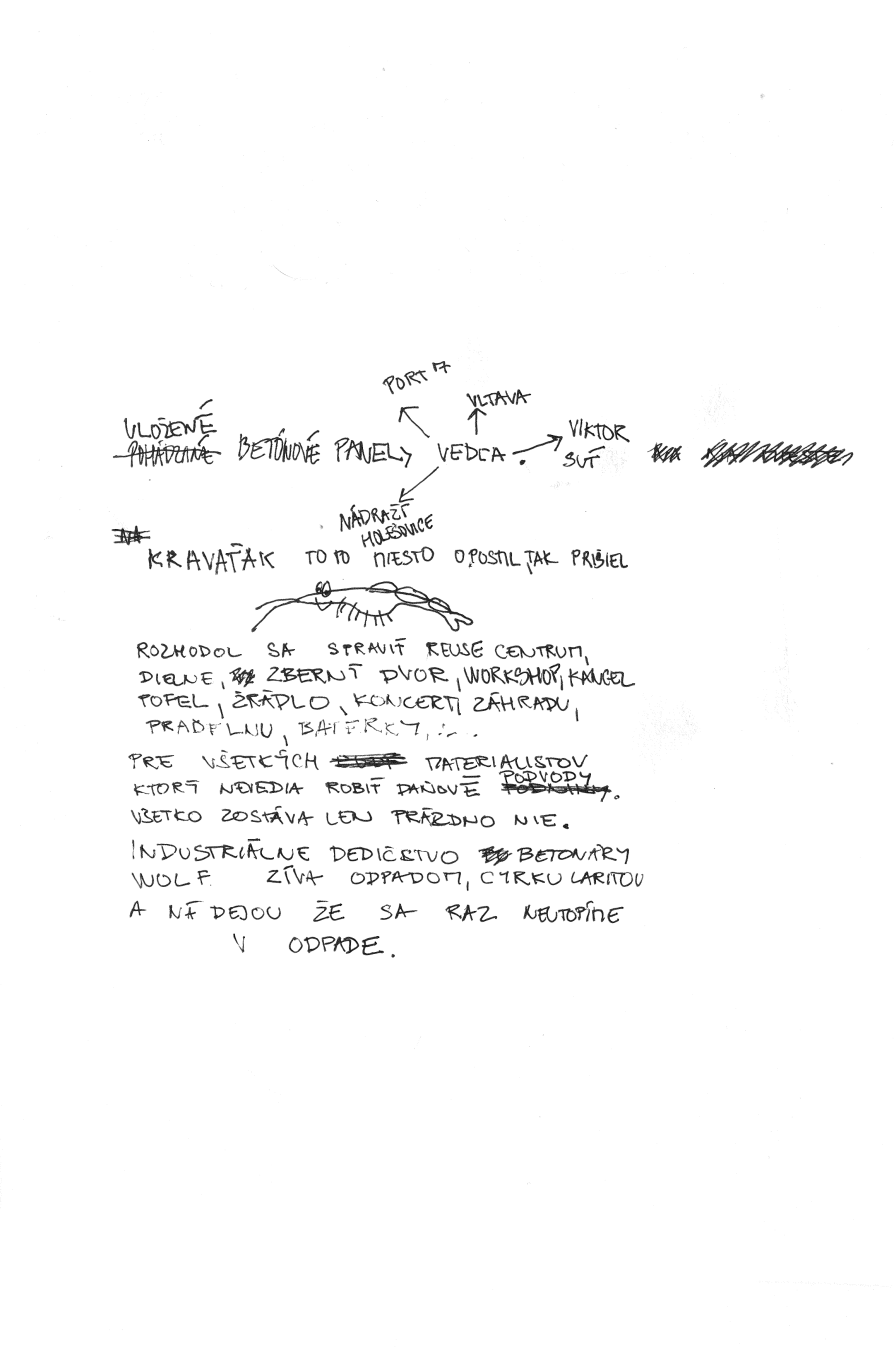 PORT 17
VLTAVA
VLOŽENÉ
POHÁDZANÉ BETÓNOVÉ PANELY VEDĽA.
VIKTOR
SUŤ
NÁDRAŽÍ
HOLEŠOVICE
NA
KRAVAŤÁK TOTO MIESTO OPOSTIL, TAK PRIŠIEL
ROZHODOL SA SPRAVIŤ REUSE CENTRUM,
DIELNE, ZBERNÝ DVOR, WORKSHOP, KANCEL
POFEL, ŽRÁDLO, KONCERTY, ZÁHRADU,
PRÁČELNU, BATERKY, ...
PRE VŠETKÝCH MATERIALISTOV
KTORÝ NEVEDIA ROBIŤ DAŇOVÉ PODVODY.
VŠETKO ZOSTÁVA LEN PRÁZDNO NIE.
INDUSTRIÁLNE DEDIČSTVO BETONÁRY
WOLF ZÍVA ODPADOM, CYRKULARITOU
A NÁDEJOU ŽE SA RAZ NEUTOPÍME
V ODPADE.